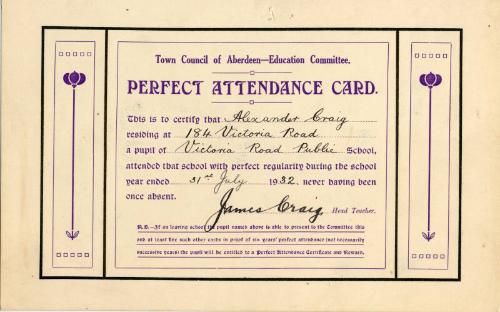 Town Council of Aberdeen—Education Committee.
PERFECT ATTENDANCE CARD.
This is to certify that Alexander Craig
residing at 184 Victoria Road
a pupil of Victoria Road Public School,
attended that school with perfect regularity during the school
year ended 31st July 1932, never having been
once absent.
James Craig, Head Teacher.
N.B.—If on leaving school the pupil named above is able to present to the Committee this
and at least five such other cards in proof of six years' perfect attendance (not necessarily
successive years) the pupil will be entitled to a Perfect Attendance Certificate and Reward.